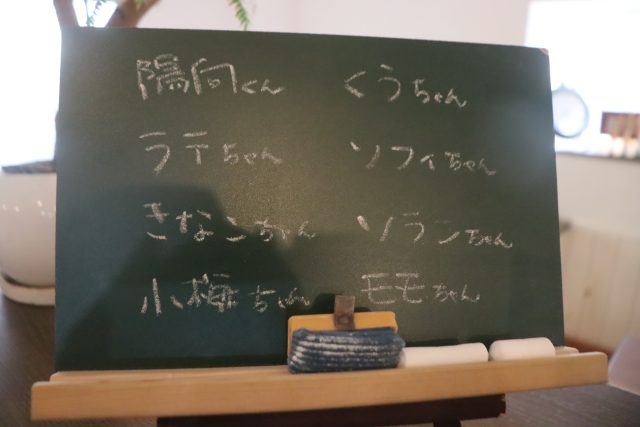 陽向くん くうちゃん
ラテちゃん ソフィちゃん
きなこちゃん ソランちゃん
小梅ちゃん モモちゃん